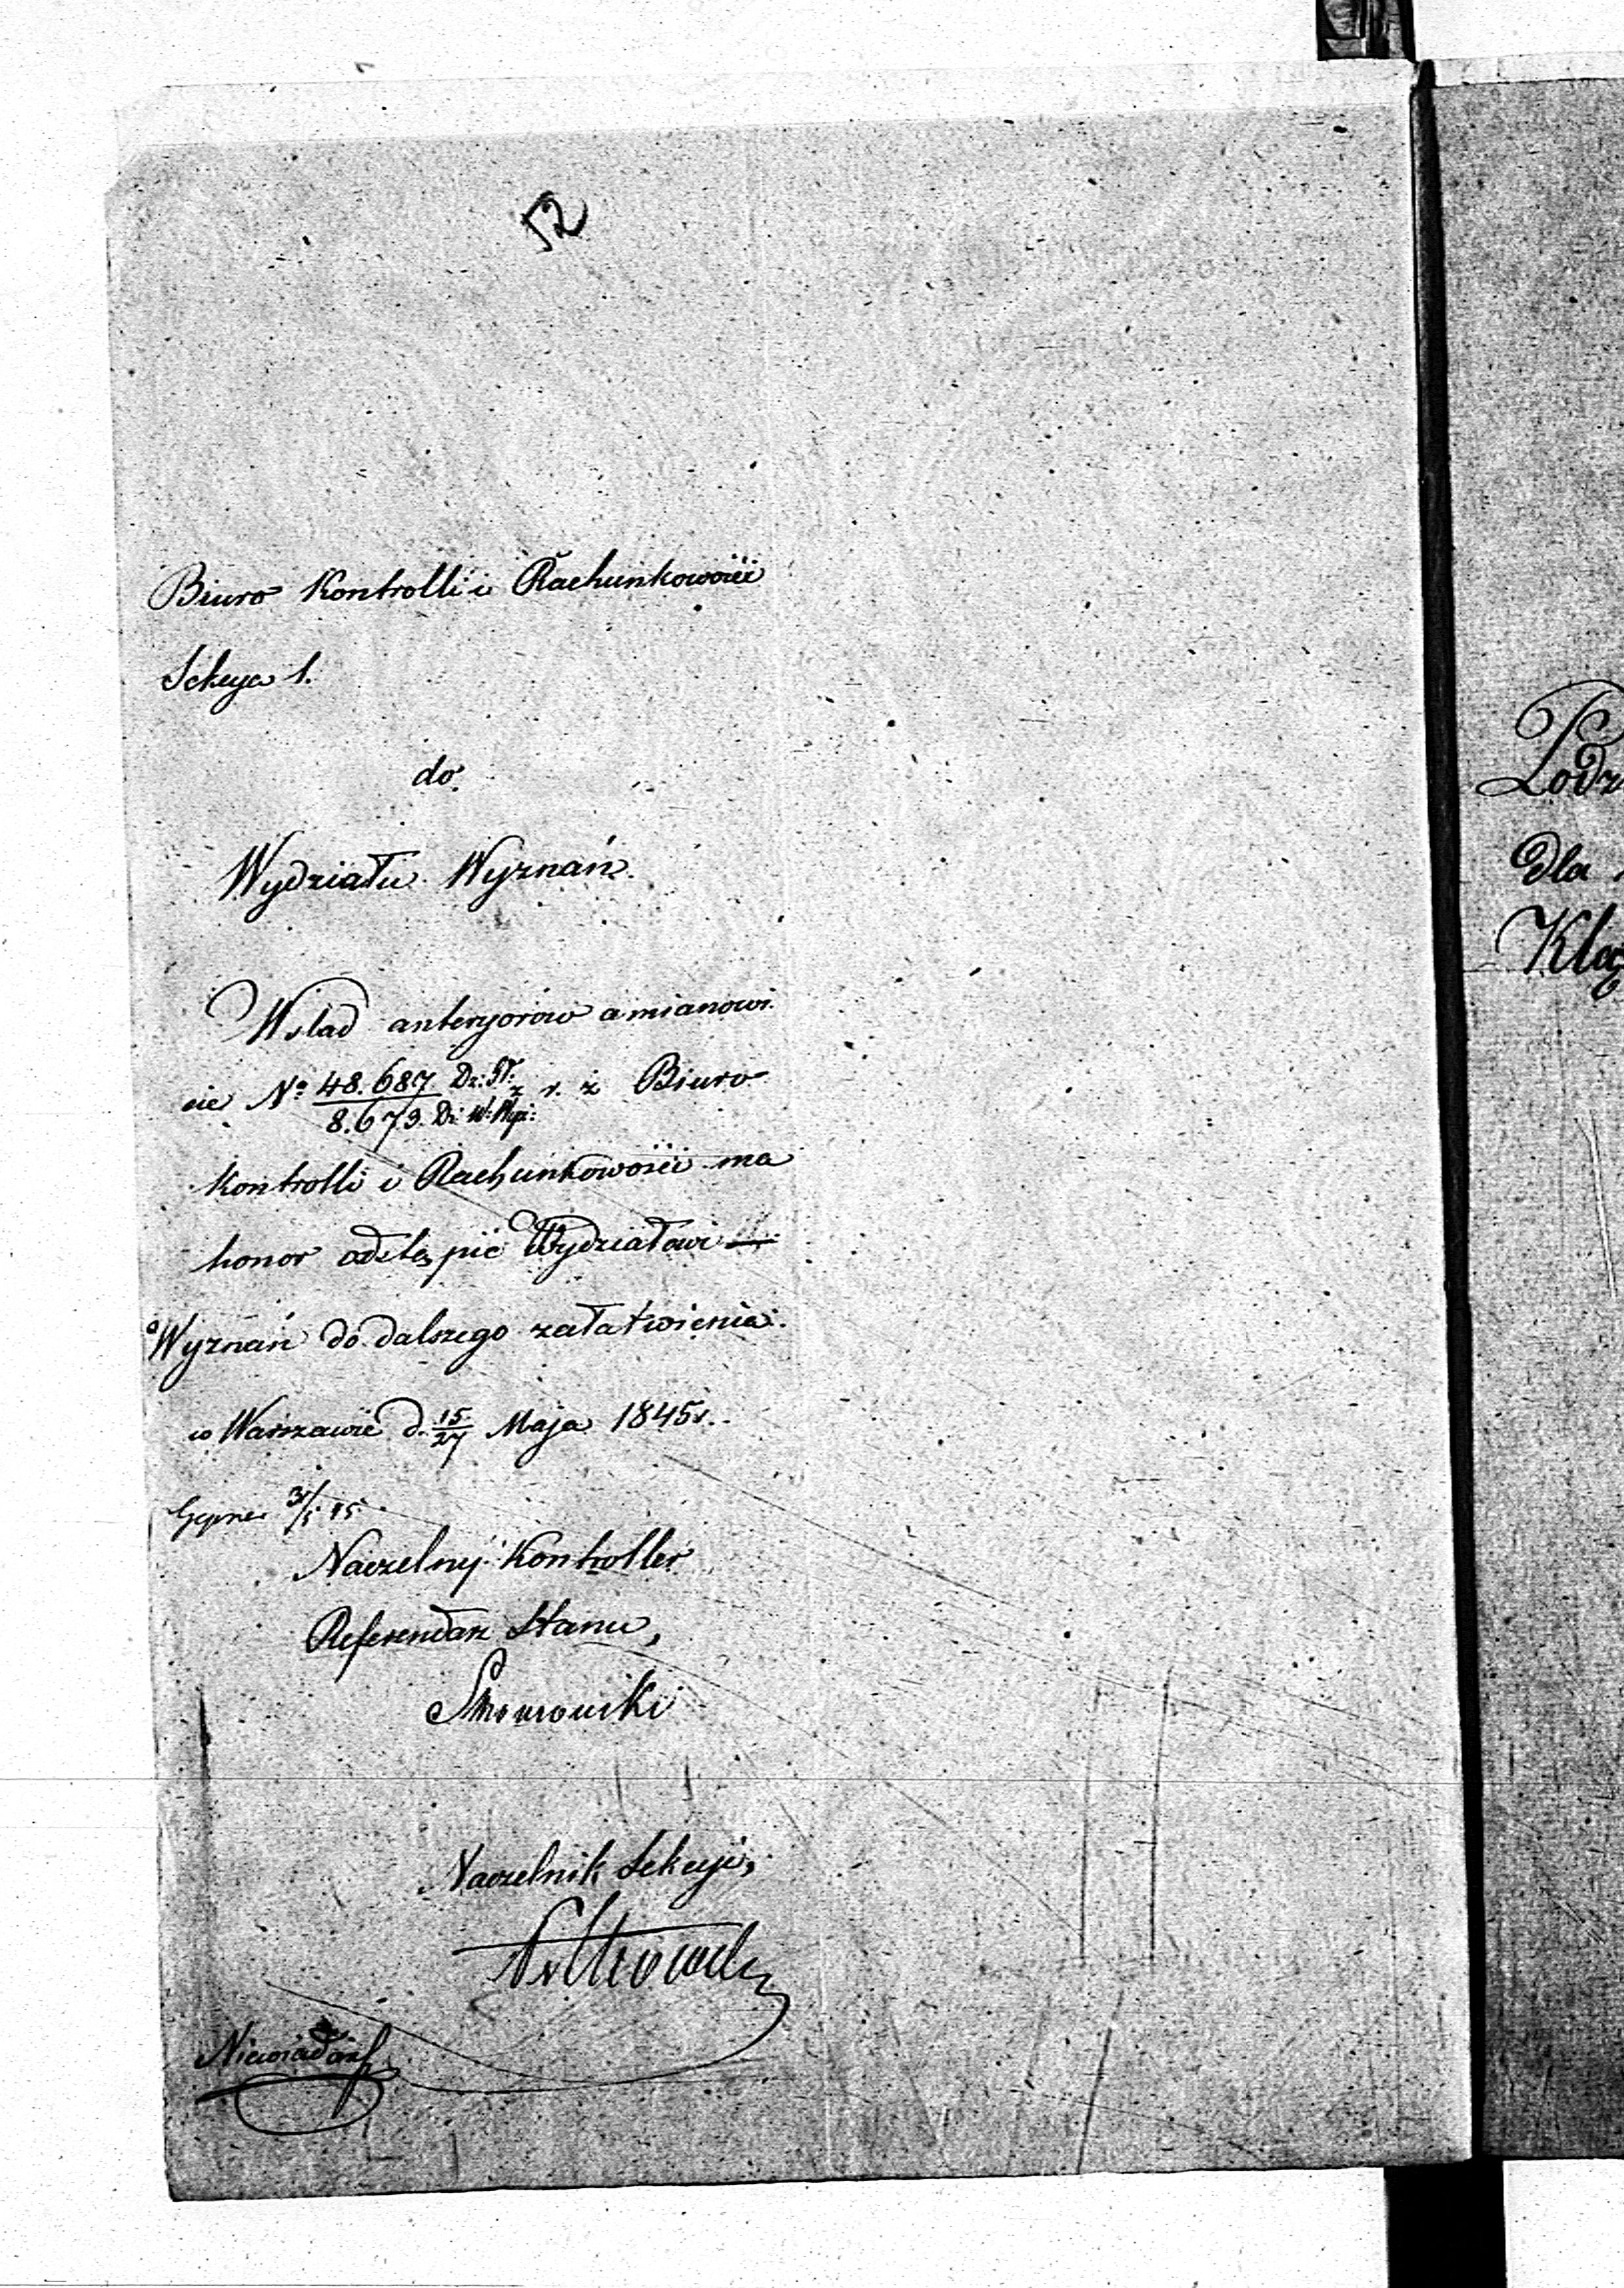 52
Biuro Kontrolli i Rachunkowości
Sekcya 1.
do
Wydziału Wyznań.
W ślad anteryorów a mianowi
cie No 48.687 Dz: St: z r. z Biuro
8.679. Dz: W: Wyz:
Kontrolli i Rachunkowości ma
honor odstąpić Wydziałowi
Wyznań do dalszego załatwienia.
w Warszawie d. 15/27 Maja 1845 r.
3/5 45
Naczelny Kontroller
Referendarz Stanu,
Naczelnik Sekcyi,
Podz
dla
Klę